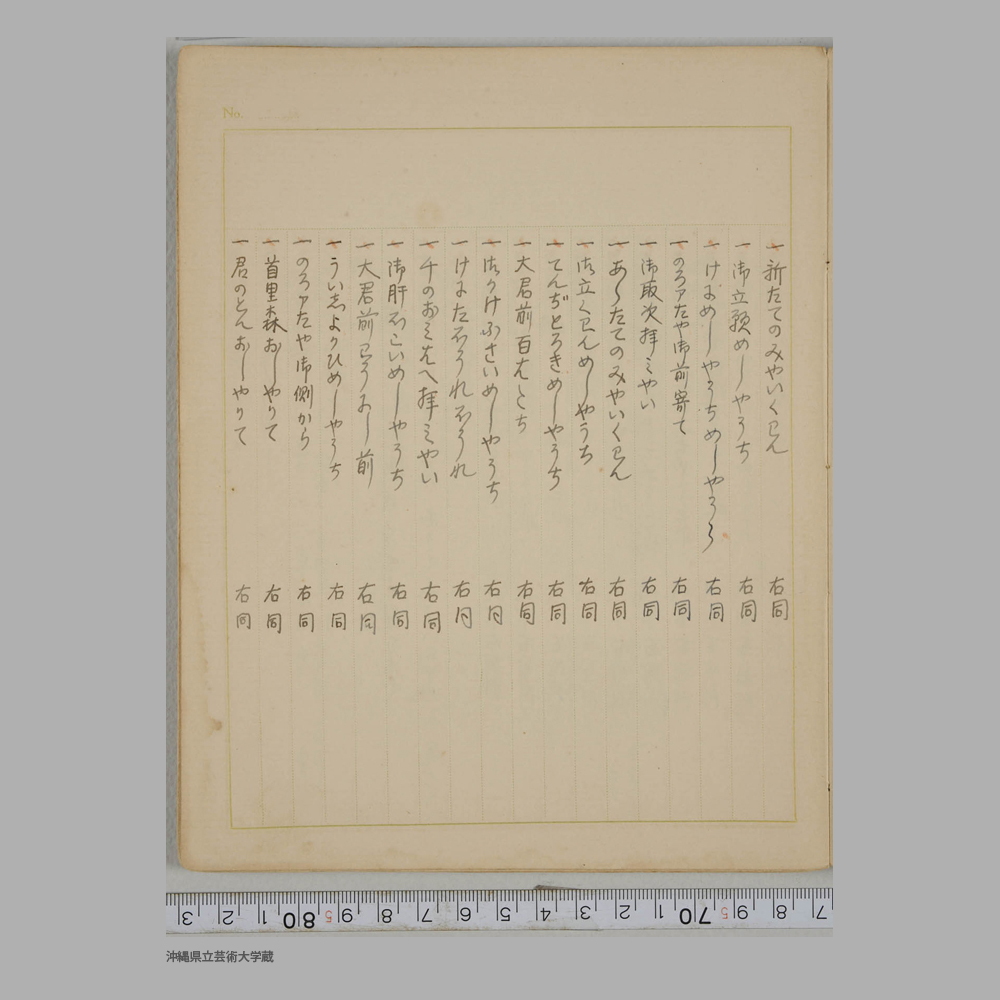 No.
一 新たてのみやいくわん 右同
一 御立願めしやうち 右同
一 けおめしやうちめしやうろ 右同
一 のろアたや御前寄て 右同
一 御取次拝ミやい 右同
一 あらたてのみやいくわん 右同
一 御立くわんめしやうち 右同
一 てんぢとろきめしやうち 右同
一 大君前百はとち 右同
一 御かけふさいめしやうち 右同
一 けよたボうれボうれ 右同
一 千のおミはへ拝ミやい 右同
一 御肝 めしやうち 右同
一 大君前 前 右同
一 うい志よりひめしやうち 右同
一 のろアたや御側から 右同
一 首里森おしやりて 右同
一 君のとんおしやりて 右同
3 2 1 80 9 8 7 6 5 4 3 2 1 70 9 8 7
沖縄県立芸術大学蔵